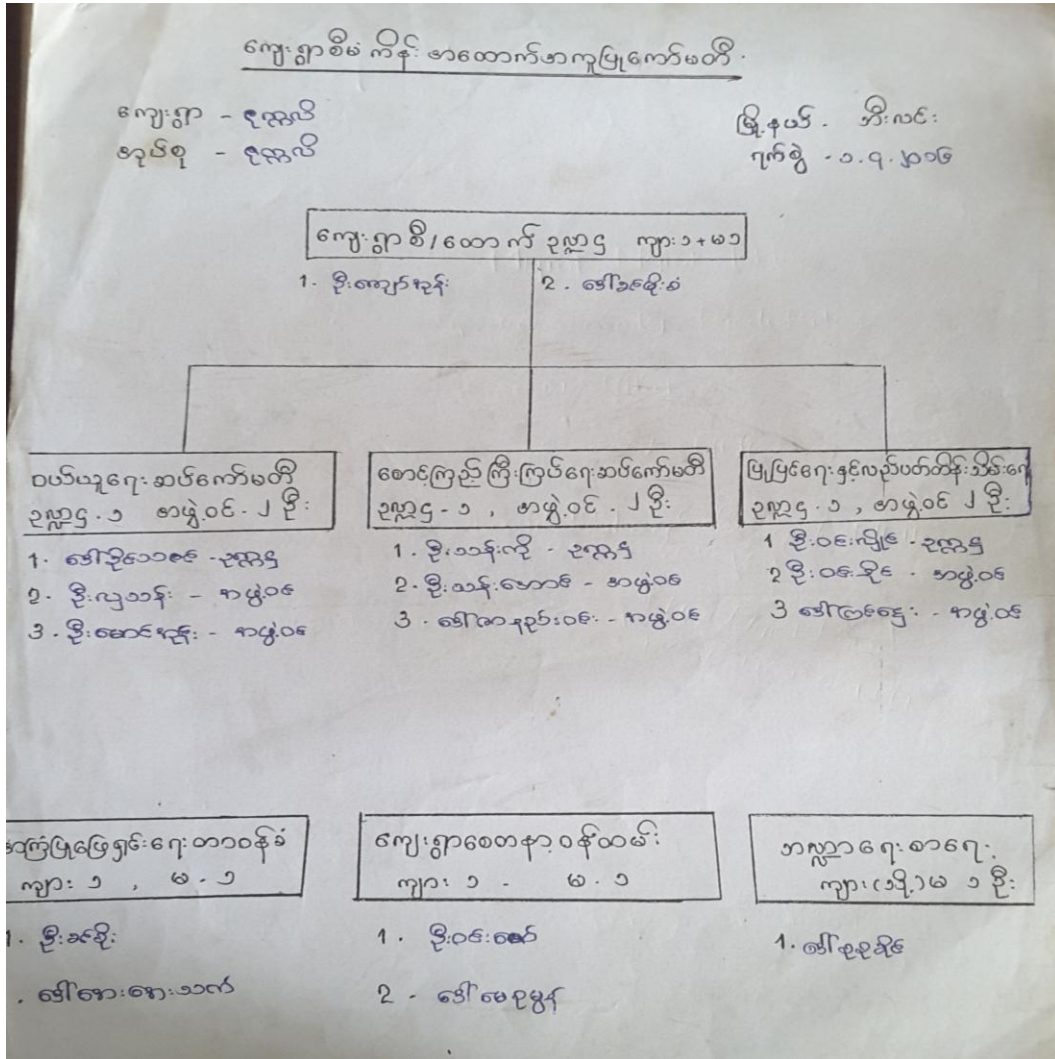 ကျေးရွာစီမံကိန်း အထောက်အကူပြုကော်မတီ
ကျေးရွာ -
အုပ်စု -
မြို့နယ် - ဘီးလင်း
ရက်စွဲ - ၁.၇.၂၀၁၆
ကျေးရွာစီ/ထောက် ဥက္ကဋ္ဌ ကျား ၁ + မ ၁
1. ဦးကျော်ထွန်း
2. ဒေါ်ခင်စိုးစံ
ဝယ်ယူရေးဆပ်ကော်မတီ
ဥက္ကဋ္ဌ - ၁ အဖွဲ့ဝင် - ၂ ဦး
1. ဒေါ် - ဥက္ကဋ္ဌ
2. ဦးလှသန်း - အဖွဲ့ဝင်
3. ဦးမောင်ထွန်း - အဖွဲ့ဝင်
စောင့်ကြည့်ကြီးကြပ်ရေးဆပ်ကော်မတီ
ဥက္ကဋ္ဌ - ၁ , အဖွဲ့ဝင် - ၂ ဦး
1. ဦး - ဥက္ကဋ္ဌ
2. ဦးသန်းအောင် - အဖွဲ့ဝင်
3. ဒေါ် - အဖွဲ့ဝင်
ပြုပြင်ရေးနှင့်လည်ပတ်ထိန်းသိမ်းရေး
ဥက္ကဋ္ဌ - ၁ , အဖွဲ့ဝင် ၂ ဦး
1 ဦးဝင်းလှိုင် - ဥက္ကဋ္ဌ
2 ဦးဝင်းနိုင် - အဖွဲ့ဝင်
3 ဒေါ်မြင့်ဌေး - အဖွဲ့ဝင်
အကြံပြုဖြေရှင်းရေးတာဝန်ခံ
ကျား ၁ , မ - ၁
1. ဦးခင်စိုး
. ဒေါ်အေးအေးသက်
ကျေးရွာစေတနာ့ဝန်ထမ်း
ကျား ၁ - မ - ၁
1. ဦးဝင်းဇော်
2 - ဒေါ်မေဥမွန်
ဘဏ္ဍာရေးစာရေး
ကျား (သို့) မ ၁ ဦး
1. ဒေါ်စုစုခိုင်